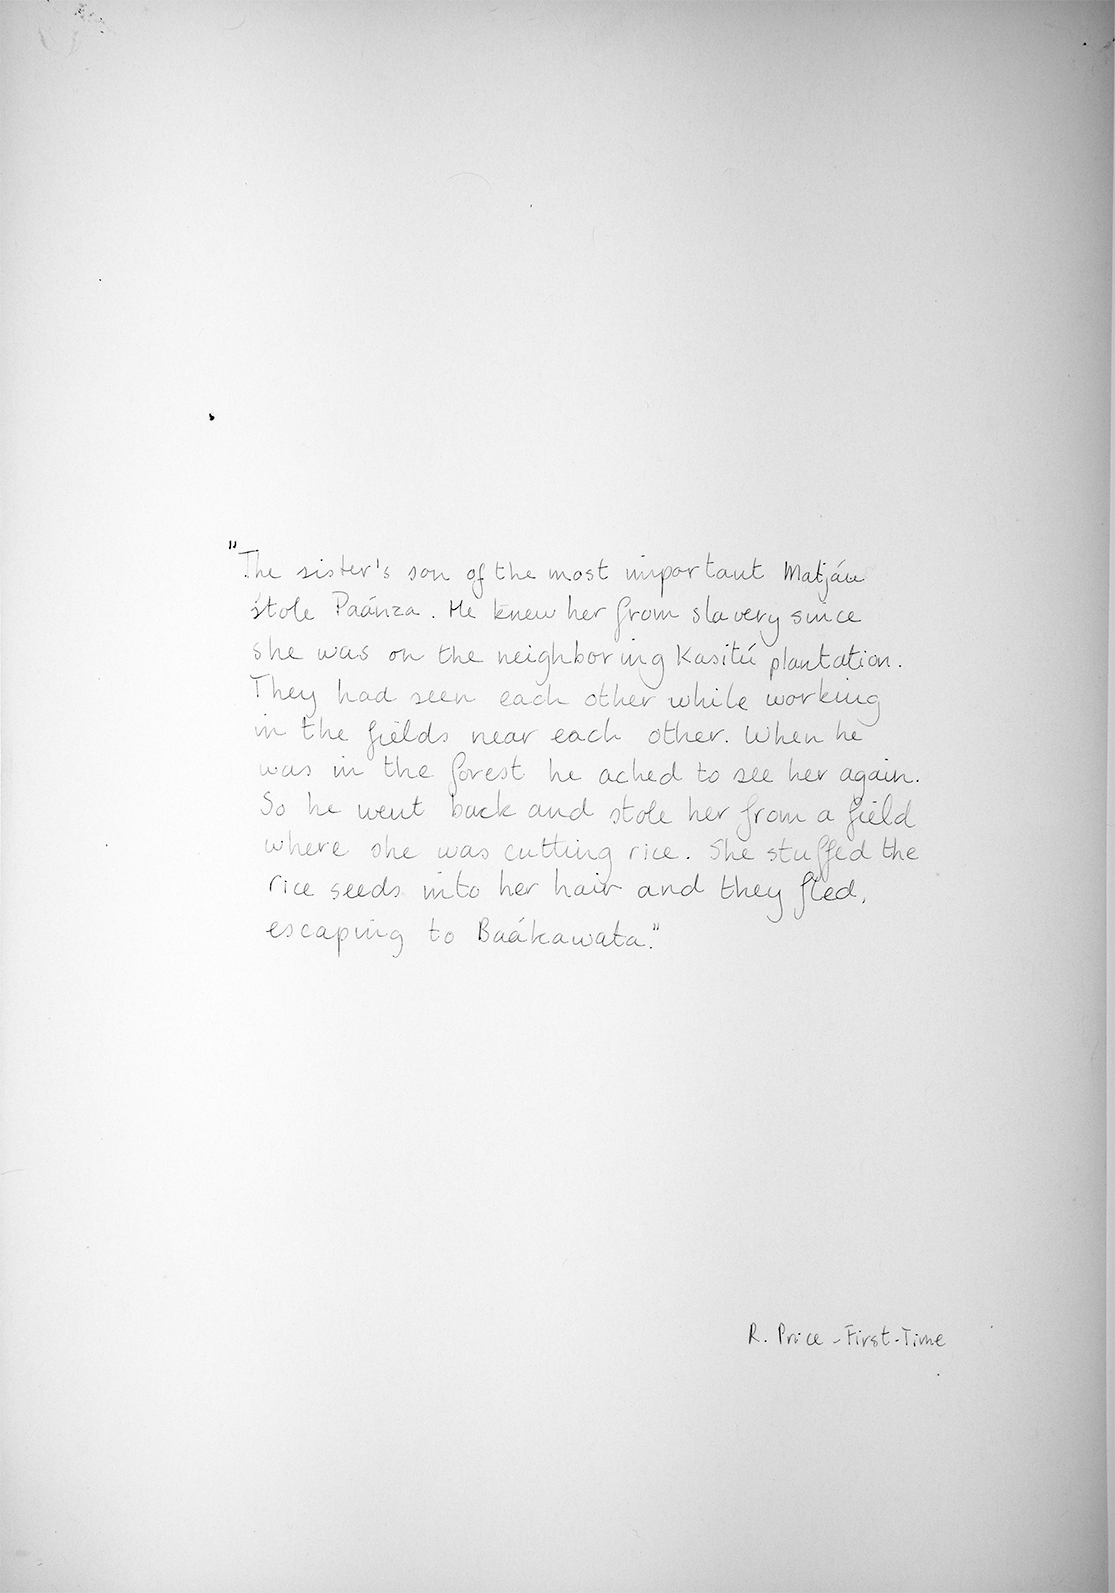 "The sister's son of the most important Matjáu
stole Paánza. He knew her from slavery since
she was on the neighboring Kasitú plantation.
They had seen each other while working
in the fields near each other. When he
was in the forest he ached to see her again.
So he went back and stole her from a field
where she was cutting rice. She stuffed the
rice seeds into her hair and they fled,
escaping to Baákawata."
R. Price - First-Time